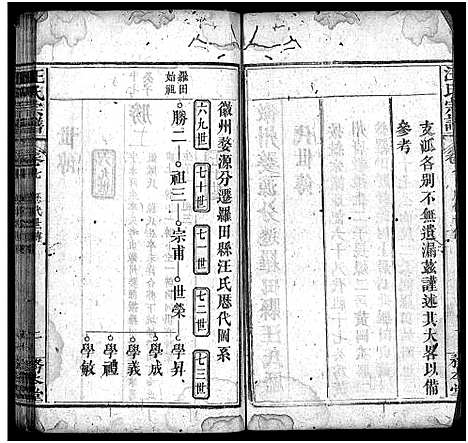 汪氏宗譜
支派各別不無遺漏茲謹述其大畧以備
參考
務本堂
徽州婺源分遷羅田縣汪氏歷代圖系
六九世
七十世
七一世
七二世
七三世
羅田始祖
勝二
祖三
宗甫
世榮
學昇
學成
學義
學禮
學敏
汪氏宗譜
務本堂